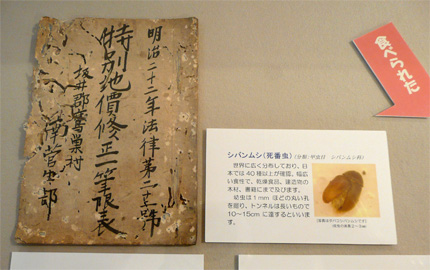 明治二十二年法律第二十二號
特別地價修正一筆限表
坂井郡鶯巣村
食べられた
シバンムシ(死番虫)(分類/甲虫目 シバンムシ科)
世界に広く分布しており、日
本では40種以上が確認。幅広
い食性で、乾燥食品、建造物の
木材、書籍にまで及びます。
幼虫は1mmほどの丸い孔
を掘り、トンネルは長いもので
10～15cmに達するといいま
す。